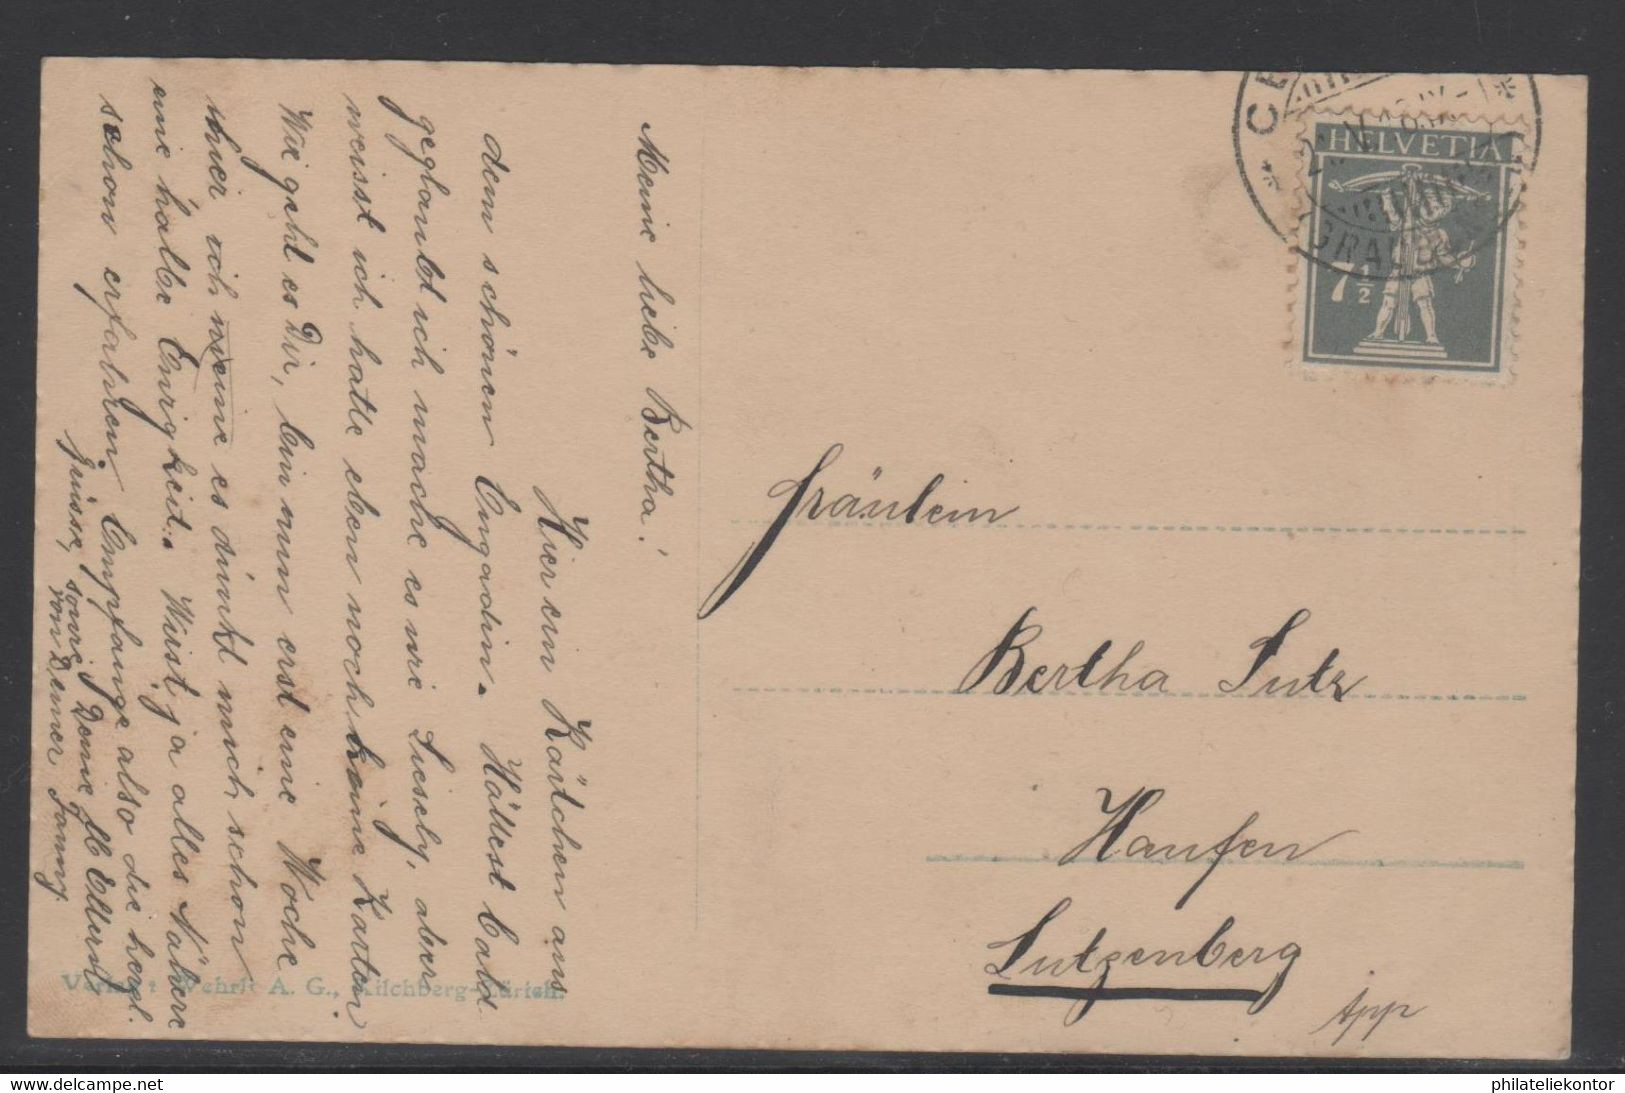 Meine liebe Bertha!
Hier ein Kärtchen aus
dem schönen Engadin. Hättest bald
geglaubt ich mache es wie Liesely, aber
weisst ich hatte eben noch keine Karten.
Wie geht es Dir, bin nun erst eine Woche
hier ich meine es dünkt mich schon
eine halbe Ewigkeit. Wirst ja alles Nähere
schon erfahren. Empfange also die herzl.
Grüsse, sowie Deine lb Eltern
von Deiner Fanny.
Verlag: Wehrli A. G., Kilchberg-Zürich.
HELVETIA
7½
CE
GRAUB
Fräulein
Bertha Lutz
Haufen
Lutzenberg
App
delcampe.net
philateliekontor